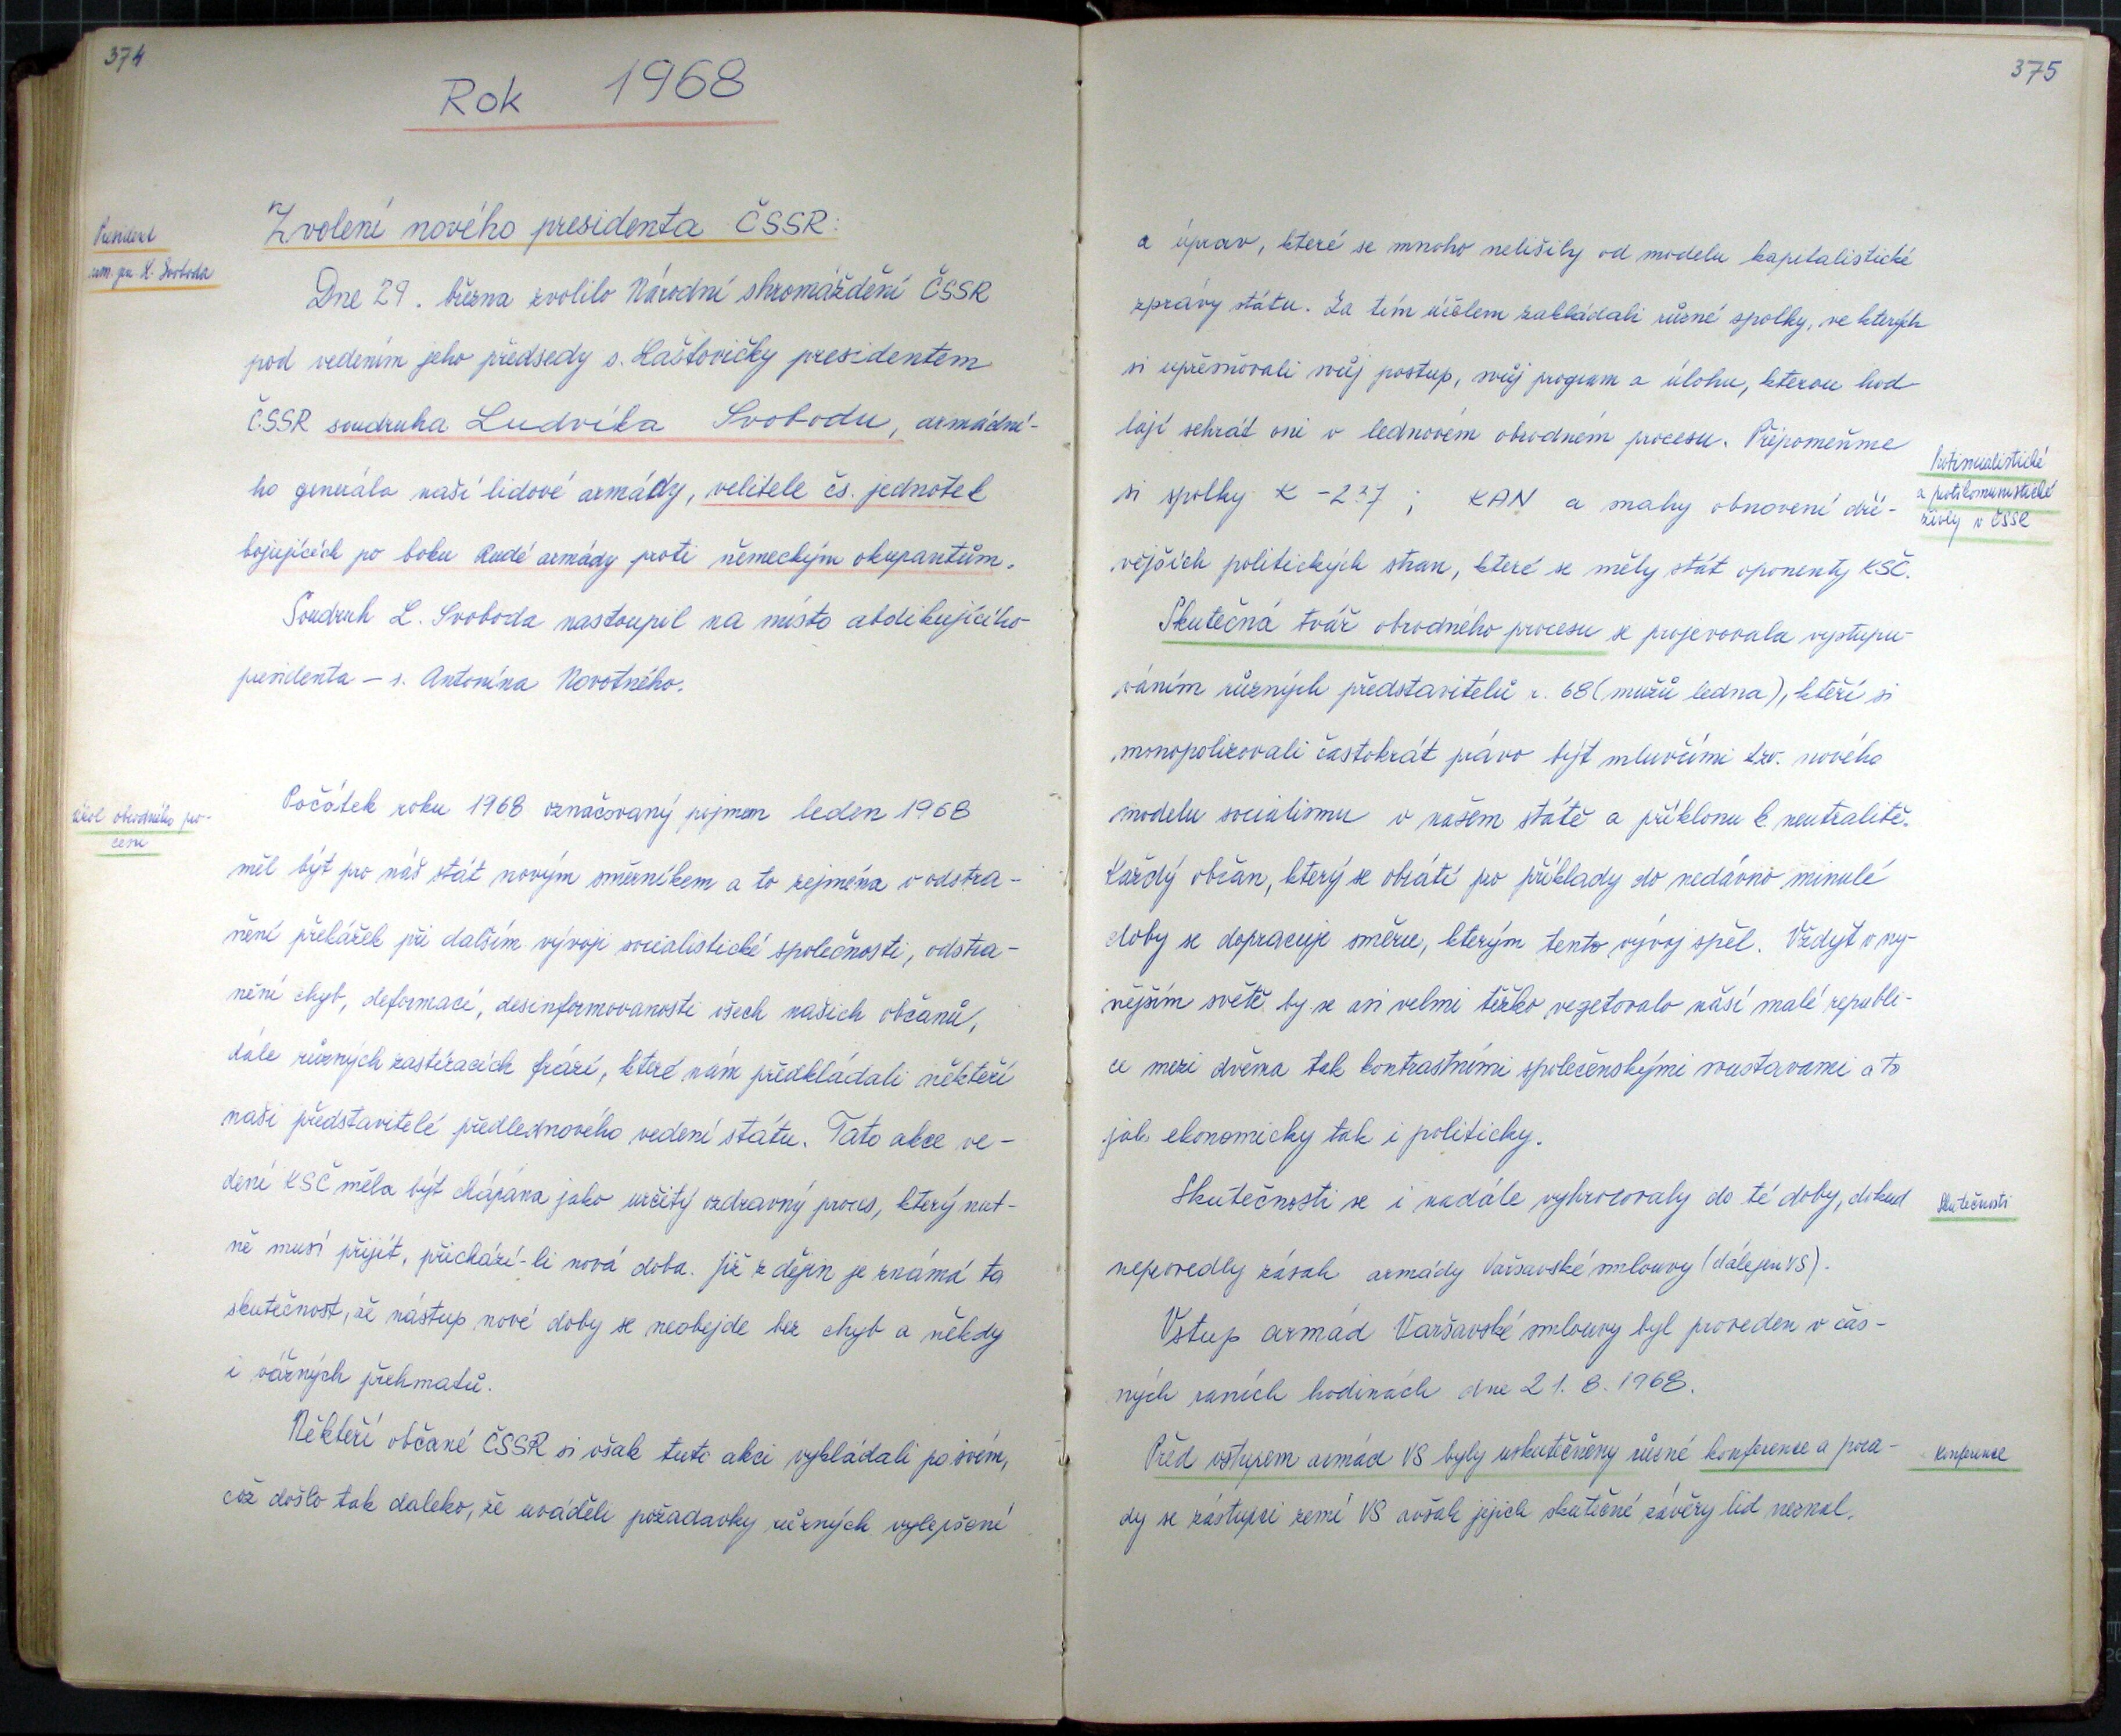 374
Rok 1968
President
arm. gen. L. Svoboda
Zvolení nového presidenta ČSSR:
Dne 29. března zvolilo Národní shromáždění ČSSR
pod vedením jeho předsedy s. Laštovičky presidentem
ČSSR soudruha Ludvíka Svobodu, armádní-
ho generála naší lidové armády, velitele čs. jednotek
bojujících po boku Rudé armády proti německým okupantům.
Soudruh L. Svoboda nastoupil na místo abdikujícího
presidenta – s. Antonína Novotného.
úkol obrodného pro-
cesu
Počátek roku 1968 označovaný pojmem leden 1968
měl být pro náš stát novým směrníkem a to zejména v odstra-
nění překážek při dalším vývoji socialistické společnosti, odstra-
nění chyb, deformací, desinformovanosti všech našich občanů,
dále různých zastíracích frází, které nám předkládali někteří
naši představitelé předlednového vedení státu. Tato akce ve-
dení KSČ měla být chápána jako určitý ozdravný proces, který nut-
ně musí přijít, přichází-li nová doba. Již z dějin je známá ta
skutečnost, že nástup nové doby se neobejde bez chyb a někdy
i vážných přehmatů.
Někteří občané ČSSR si však tuto akci vykládali po svém,
což došlo tak daleko, že uváděli požadavky různých vylepšení
375
a úprav, které se mnoho nelišily od modelu kapitalistické
zprávy státu. Za tím účelem zakládali různé spolky, ve kterých
si upřesňovali svůj postup, svůj program a úlohu, kterou hod-
lají sehrát oni v lednovém obrodném procesu. Připomeňme
si spolky K-237; KAN a snahy obnovení dří-
vějších politických stran, které se měly stát oponenty KSČ.
Protisocialistické
a protikomunistické
živly v ČSSR
Skutečná tvář obrodného procesu se projevovala vystupo-
váním různých představitelů r. 68 (mužů ledna), kteří si
monopolizovali častokrát právo být mluvčími tzv. nového
modelu socialismu v našem státě a příklonu k neutralitě.
Každý občan, který se obrátí pro příklady do nedávno minulé
doby se dopracuje směru, kterým tento vývoj spěl. Vždyť v ny-
nějším světě by se asi velmi těžko vegetovalo naší malé republi-
ce mezi dvěma tak kontrastními společenskými soustavami a to
jak ekonomicky tak i politicky.
Skutečnosti se i nadále vyhrocovaly do té doby, dokud
neprovedly zásah armády Varšavské smlouvy (dále jen VS).
Skutečnosti
Vstup armád Varšavské smlouvy byl proveden v čas-
ných raních hodinách dne 21. 8. 1968.
Před vstupem armád VS byly uskutečněny různé konference a pora-
dy se zástupci zemí VS avšak jejich skutečné závěry lid neznal.
Konference